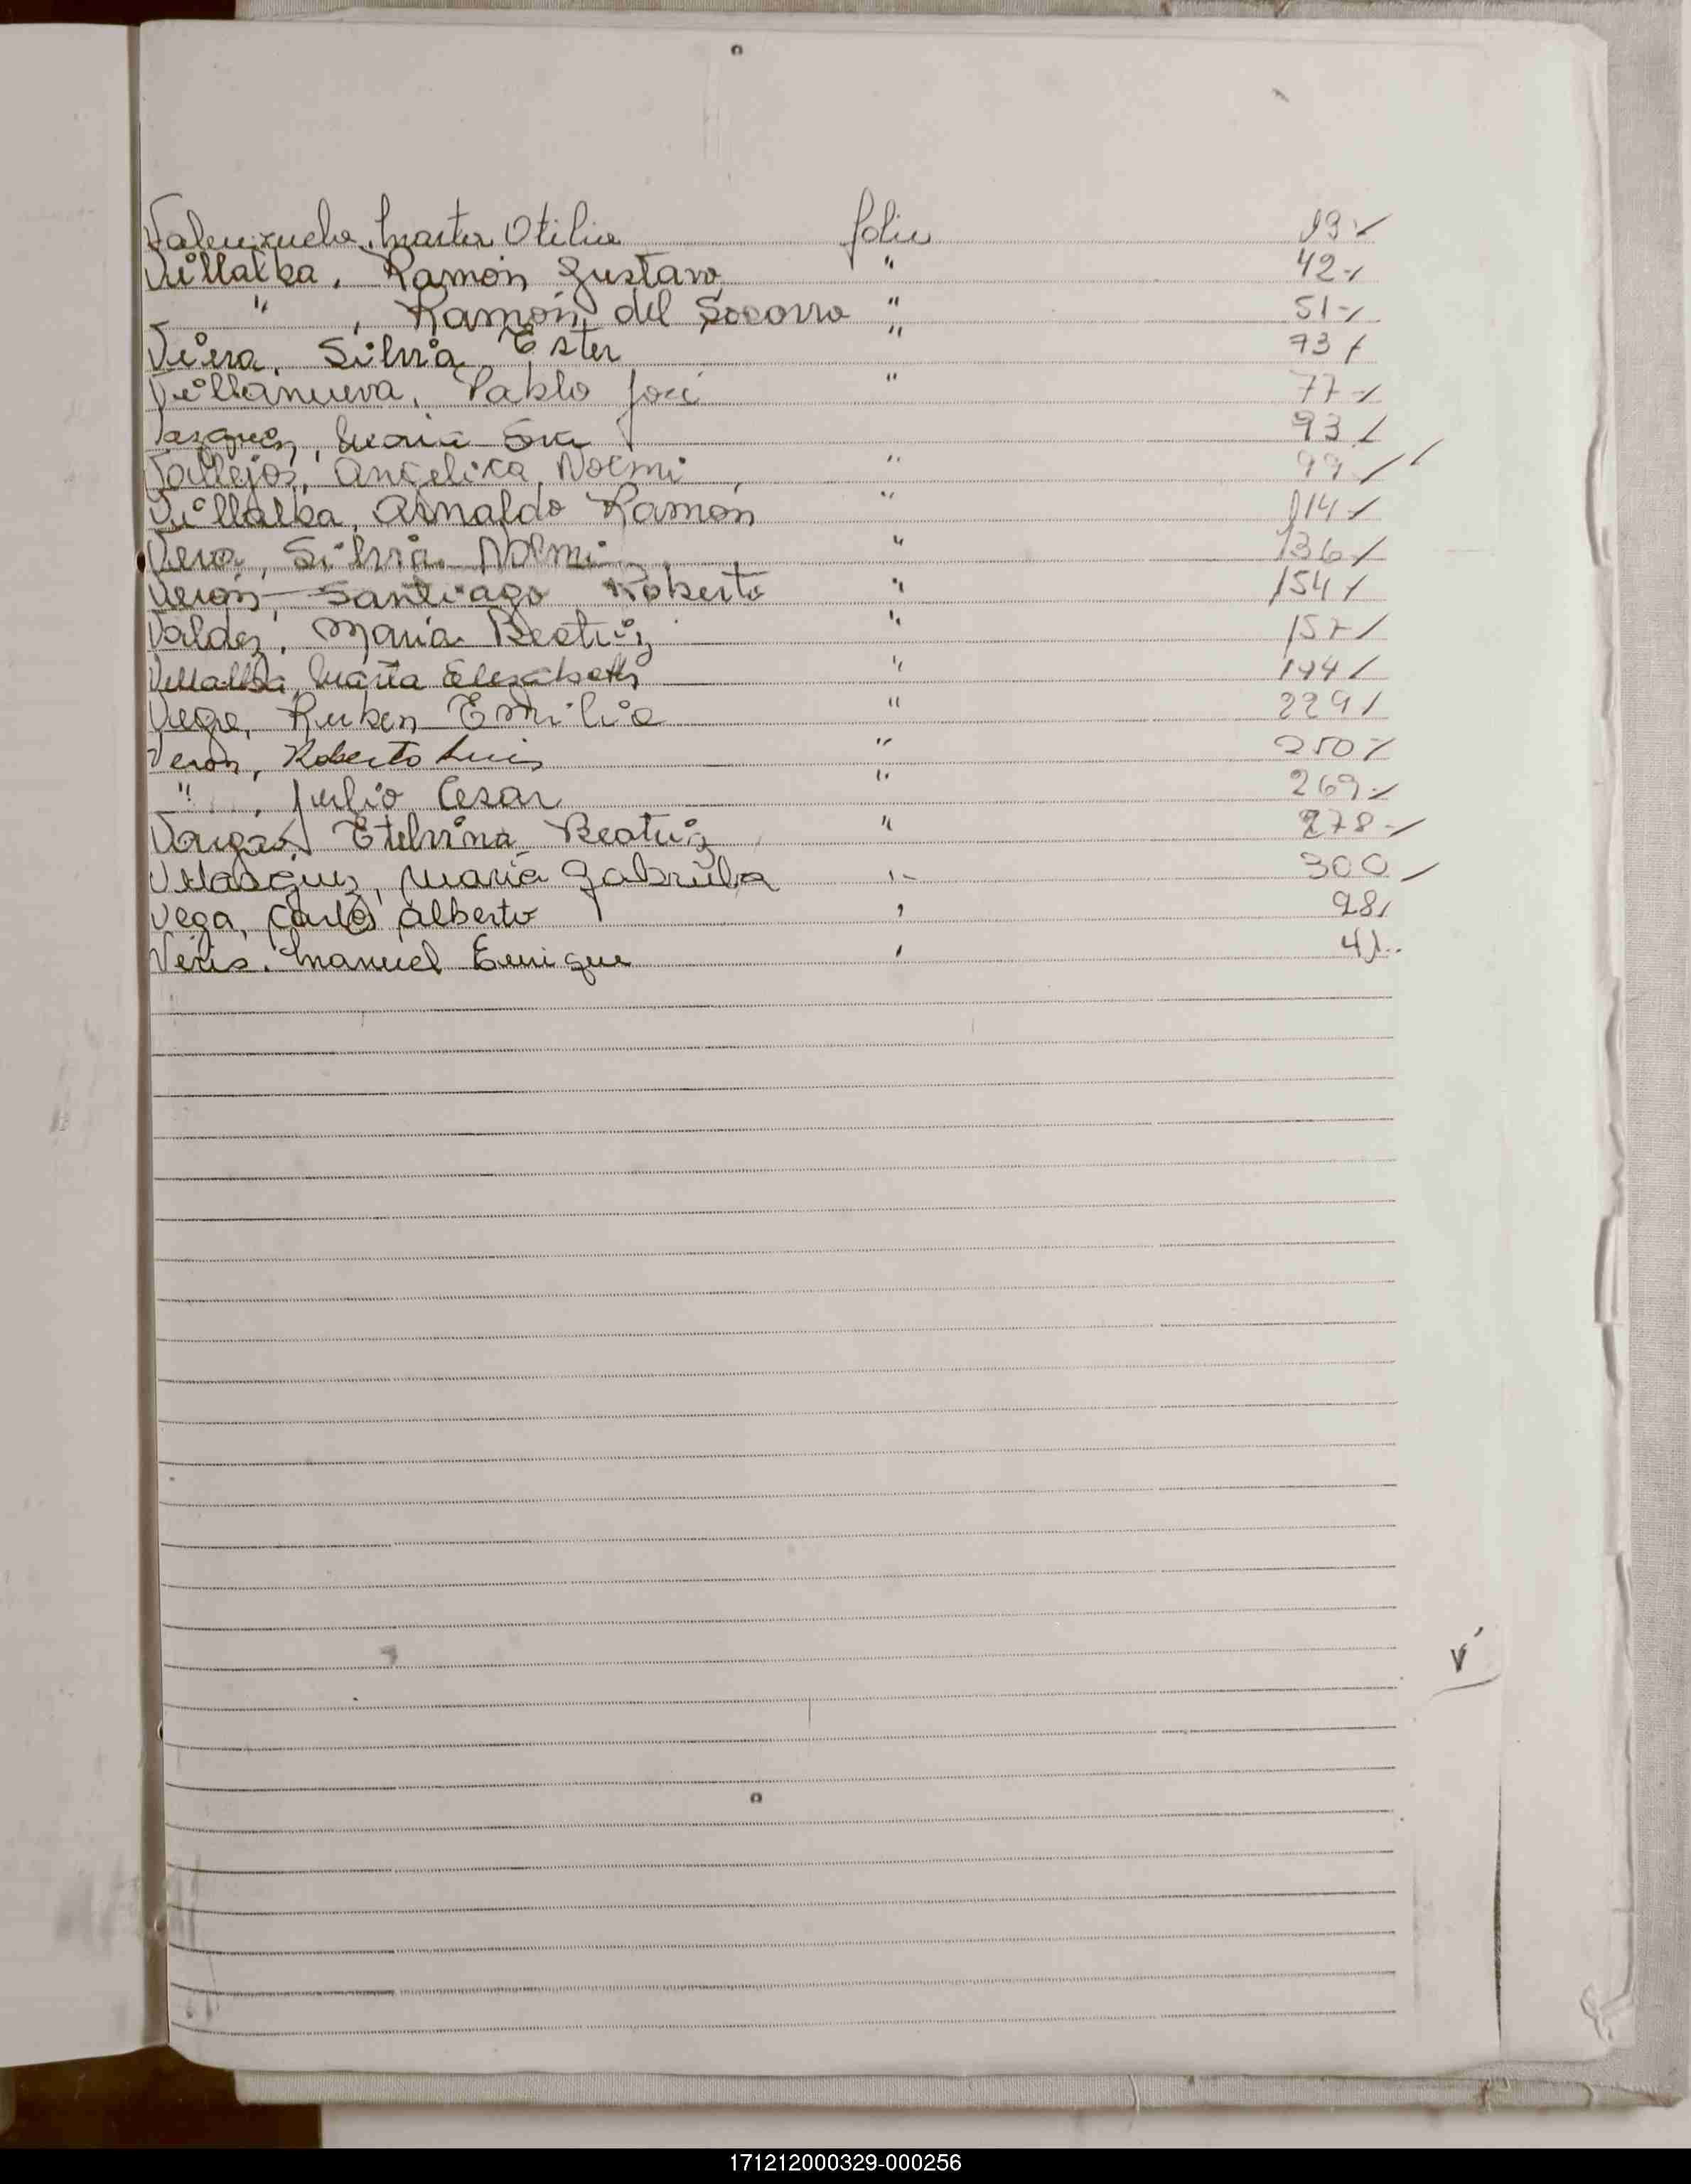 Valenzuela, Marta Otilia folio 19
Villalba, Ramón Gustavo " 42
" , Ramón del Socorro " 51
Viera, Silvia Ester " 73
Villanueva, Pablo José " 77
Vazquez, María Eva 93
Vallejos, Angelica Noemi " 99
Villalba, Arnaldo Ramón " 114
Vera, Silvia Noemi " 136
Verón, Santiago Roberto " 154
Valdez, María Beatriz " 157
Villalba, María Elizabeth " 194
Vega, Ruben Emilio " 229
Veron, Roberto Luis " 250
" , Julio Cesar " 269
Vargas Etelvina Beatriz " 278
Velasquez, María Gabriela " 300
Vega, Carlos Alberto " 28
Manuel Enrique " 41
V
171212000329-000256